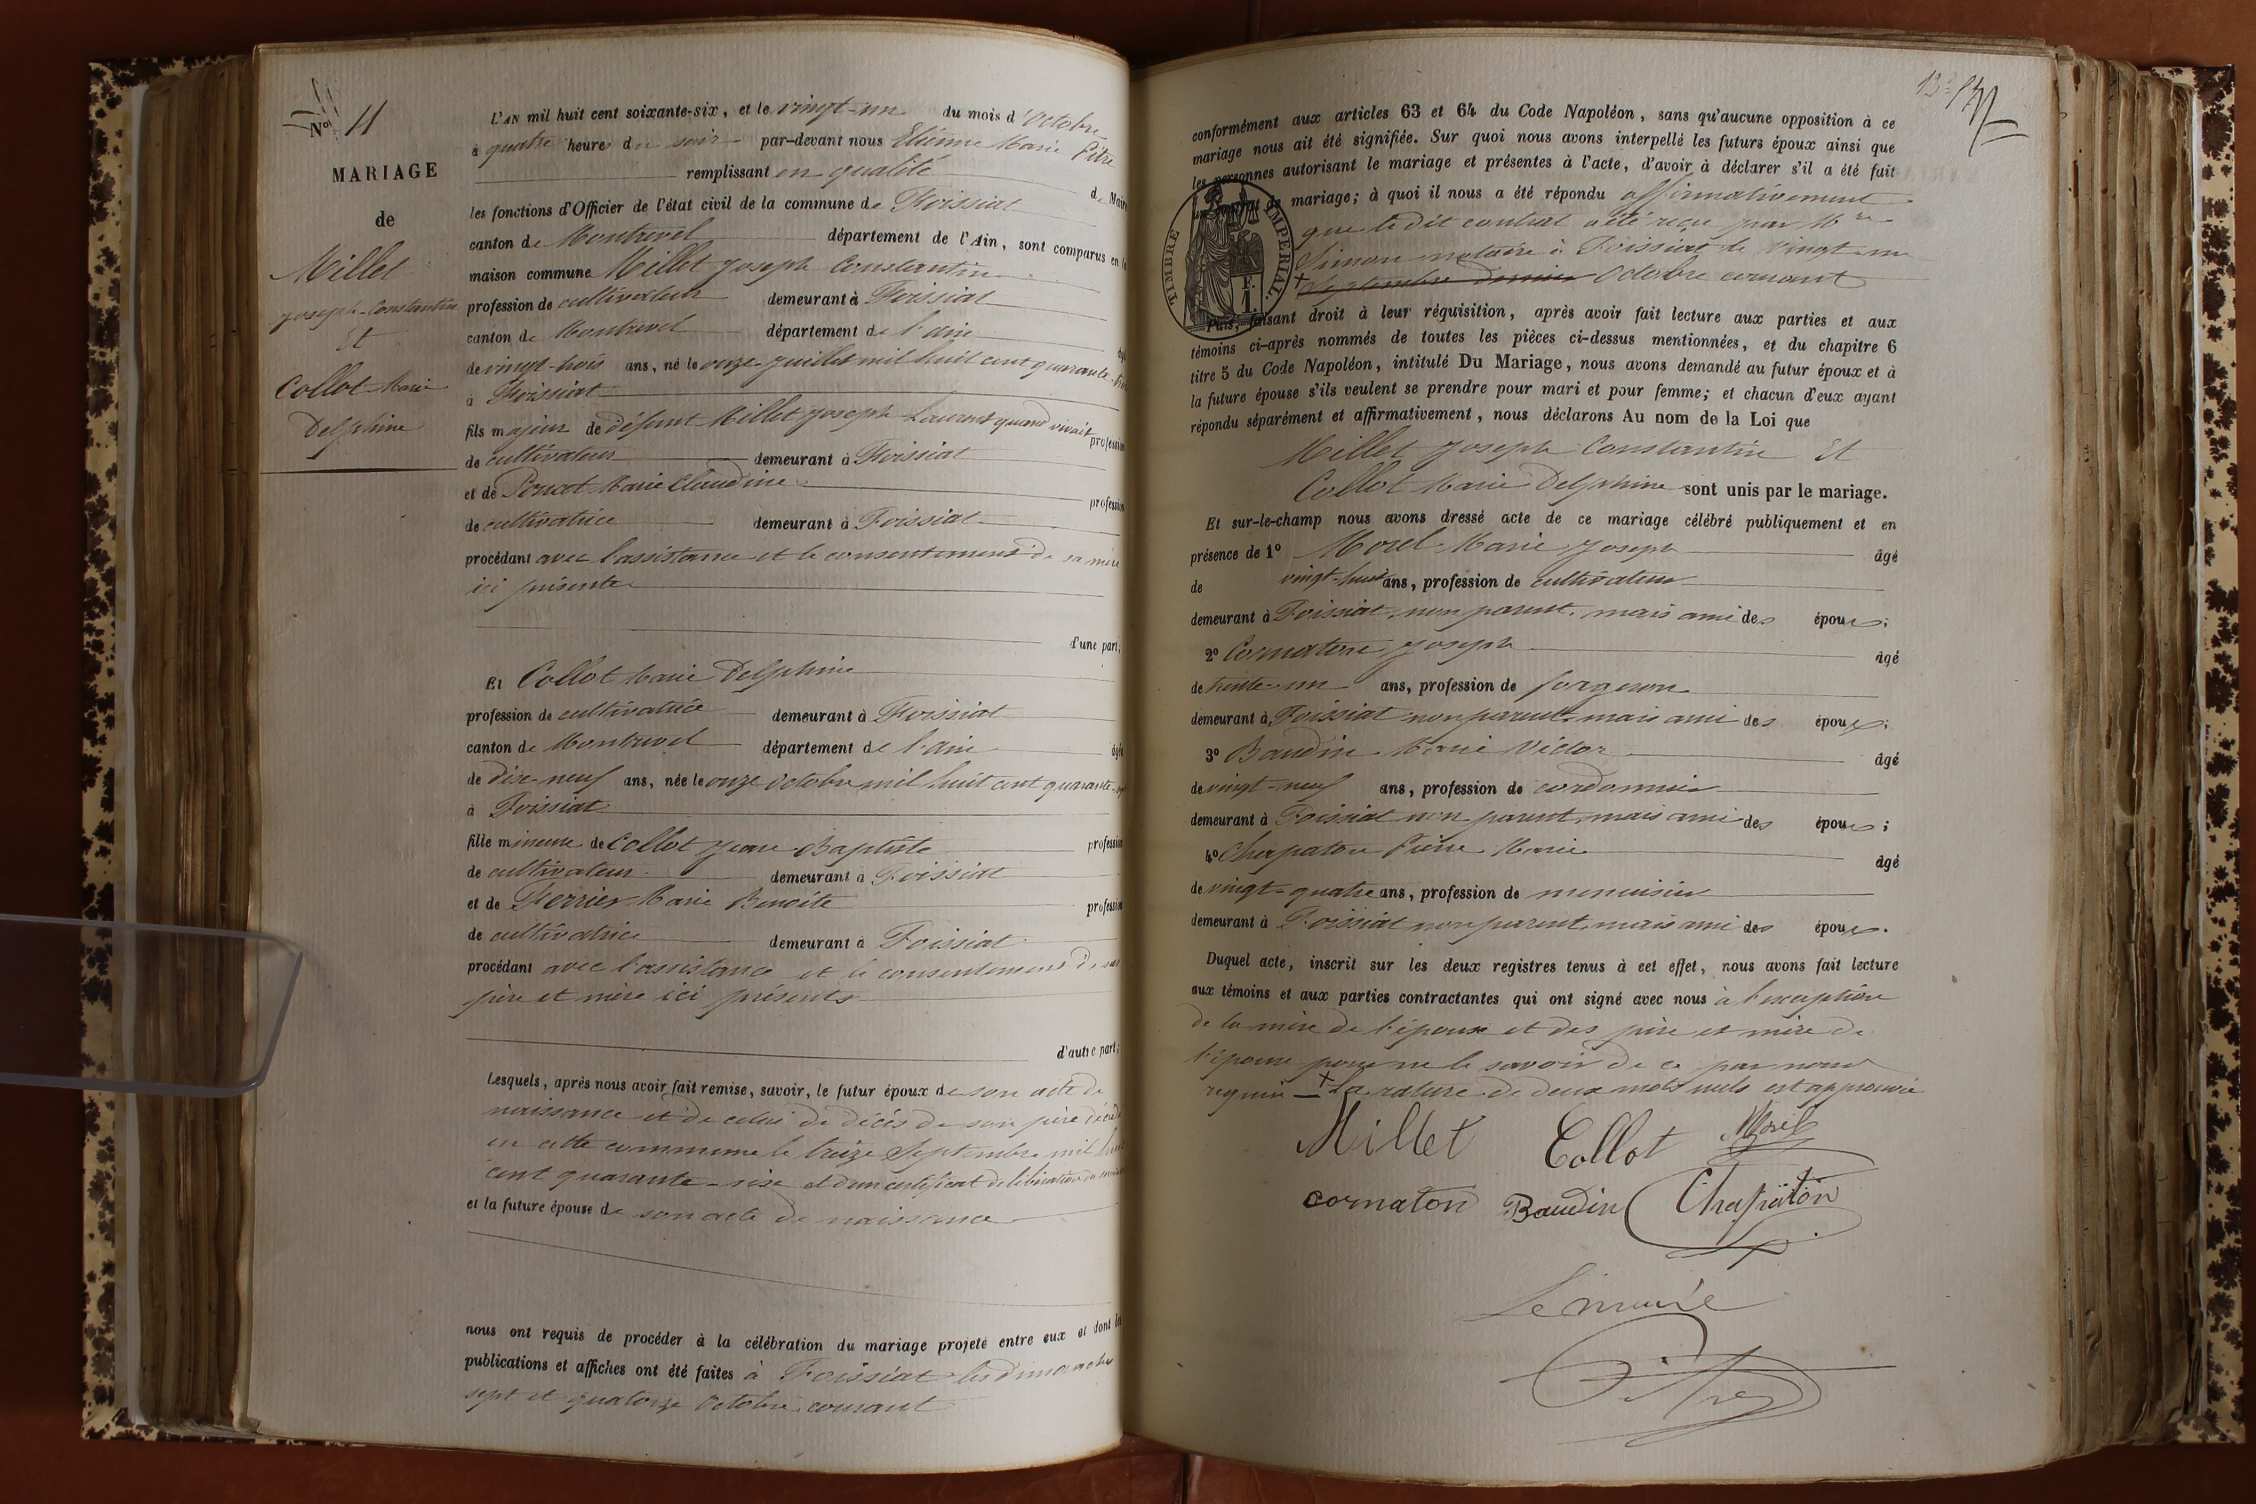 No 11
MARIAGE
de
Millet
Joseph-Constantin
Et
Collot Marie
Delphine
L'AN mil huit cent soixante-six, et le vingt-un du mois d'Octobre
à quatre heures du soir par-devant nous Etienne Marie Pitre
remplissant en qualité de Maire
les fonctions d'Officier de l'état civil de la commune de Foissiat
canton de Montrevel département de l'Ain, sont comparus en la
maison commune Millet Joseph Constantin
profession de cultivateur demeurant à Foissiat
canton de Montrevel département de l'ain âgé
de vingt-trois ans, né le onze juillet mil huit cent quarante-trois
à Foissiat
fils majeur de défunt Millet Joseph Laurent quand vivait profession
de cultivateur demeurant à Foissiat
et de Poncet Marie Claudine profession
de cultivatrice demeurant à Foissiat
procédant avec l'assistance et le consentement de sa mère
ici présente
d'une part;
Et Collot Marie Delphine
profession de cultivatrice demeurant à Foissiat
canton de Montrevel département de l'ain âgée
de dix-neuf ans, née le onze octobre mil huit cent quarante-sept
à Foissiat
fille mineure de Collot Jean-Baptiste profession
de cultivateur demeurant à Foissiat
et de Ferrier Marie Benoite profession
de cultivatrice demeurant à Foissiat
procédant avec l'assistance et le consentement de ses
père et mère ici présents
d'autre part;
Lesquels, après nous avoir fait remise, savoir, le futur époux de son acte de
naissance et de celui de décès de son père décédé
en cette commune le treize Septembre mil huit
cent quarante-six et d'un certificat de libération du
et la future épouse de son acte de naissance
nous ont requis de procéder à la célébration du mariage projeté entre eux et dont les
publications et affiches ont été faites à Foissiat les dimanches
sept et quatorze Octobre courant
conformément aux articles 63 et 64 du Code Napoléon, sans qu'aucune opposition à ce
mariage nous ait été signifiée. Sur quoi nous avons interpellé les futurs époux ainsi que
les personnes autorisant le mariage et présentes à l'acte, d'avoir à déclarer s'il a été fait
un contrat de mariage; à quoi il nous a été répondu affirmativement
que le dit contrat a été reçu par Mre
Simon notaire à Foissiat le vingt-un
+ Septembre dernier Octobre courant
TIMBRE IMPERIAL.
Puis, faisant droit à leur réquisition, après avoir fait lecture aux parties et aux
témoins ci-après nommés de toutes les pièces ci-dessus mentionnées, et du chapitre 6
titre 5 du Code Napoléon, intitulé Du Mariage, nous avons demandé au futur époux et à
la future épouse s'ils veulent se prendre pour mari et pour femme; et chacun d'eux ayant
répondu séparément et affirmativement, nous déclarons Au nom de la Loi que
Millet Joseph Constantin Et
Collot Marie Delphine sont unis par le mariage.
Et sur-le-champ nous avons dressé acte de ce mariage célébré publiquement et en
présence de 1º Morel Marie Joseph âgé
de vingt-huit ans, profession de cultivateur
demeurant à Foissiat, non parent, mais ami des époux;
2º Cornaton Joseph âgé
de trente-un ans, profession de forgeron
demeurant à Foissiat non parent, mais ami des époux;
3º Baudin Marie Victor âgé
de vingt-neuf ans, profession de cordonnier
demeurant à Foissiat non parent, mais ami des époux;
4º Chapaton Pierre Marie âgé
de vingt-quatre ans, profession de menuisier
demeurant à Foissiat non parent, mais ami des époux.
Duquel acte, inscrit sur les deux registres tenus à cet effet, nous avons fait lecture
aux témoins et aux parties contractantes qui ont signé avec nous à l'exception
de la mère de l'époux et des père et mère de
l'épouse pour ne le savoir de ce par nous
requis + La rature de deux mots nuls est approuvée
Millet Collot Morel
cornaton Baudin Chapaton
Le maire
Pitre